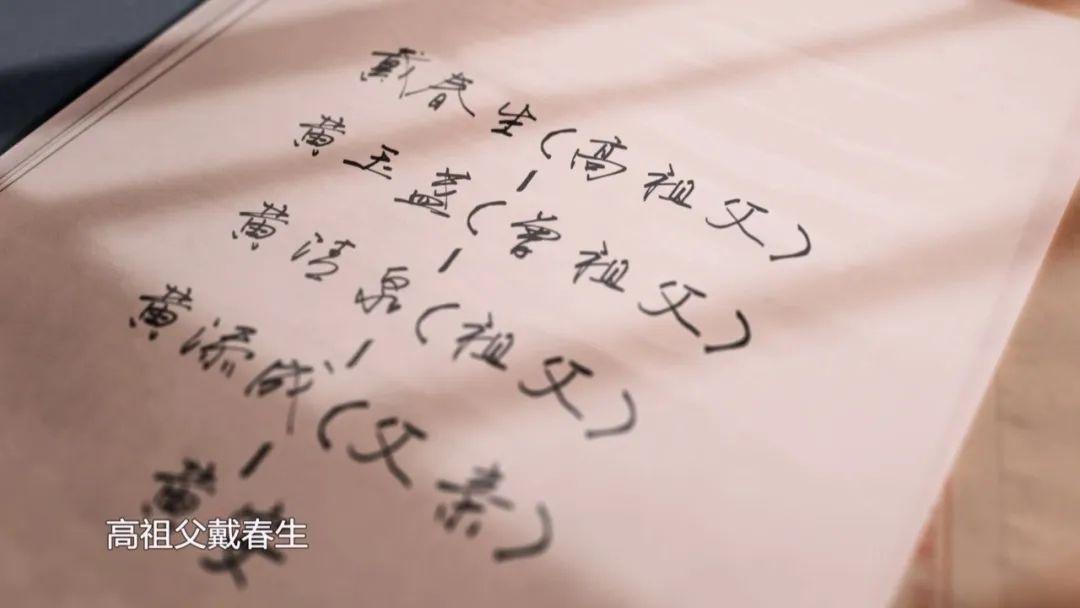 戴春生(高祖父)
黄玉盖(曾祖父)
黄清泉(祖父)
黄添成(父亲)
黄
高祖父戴春生